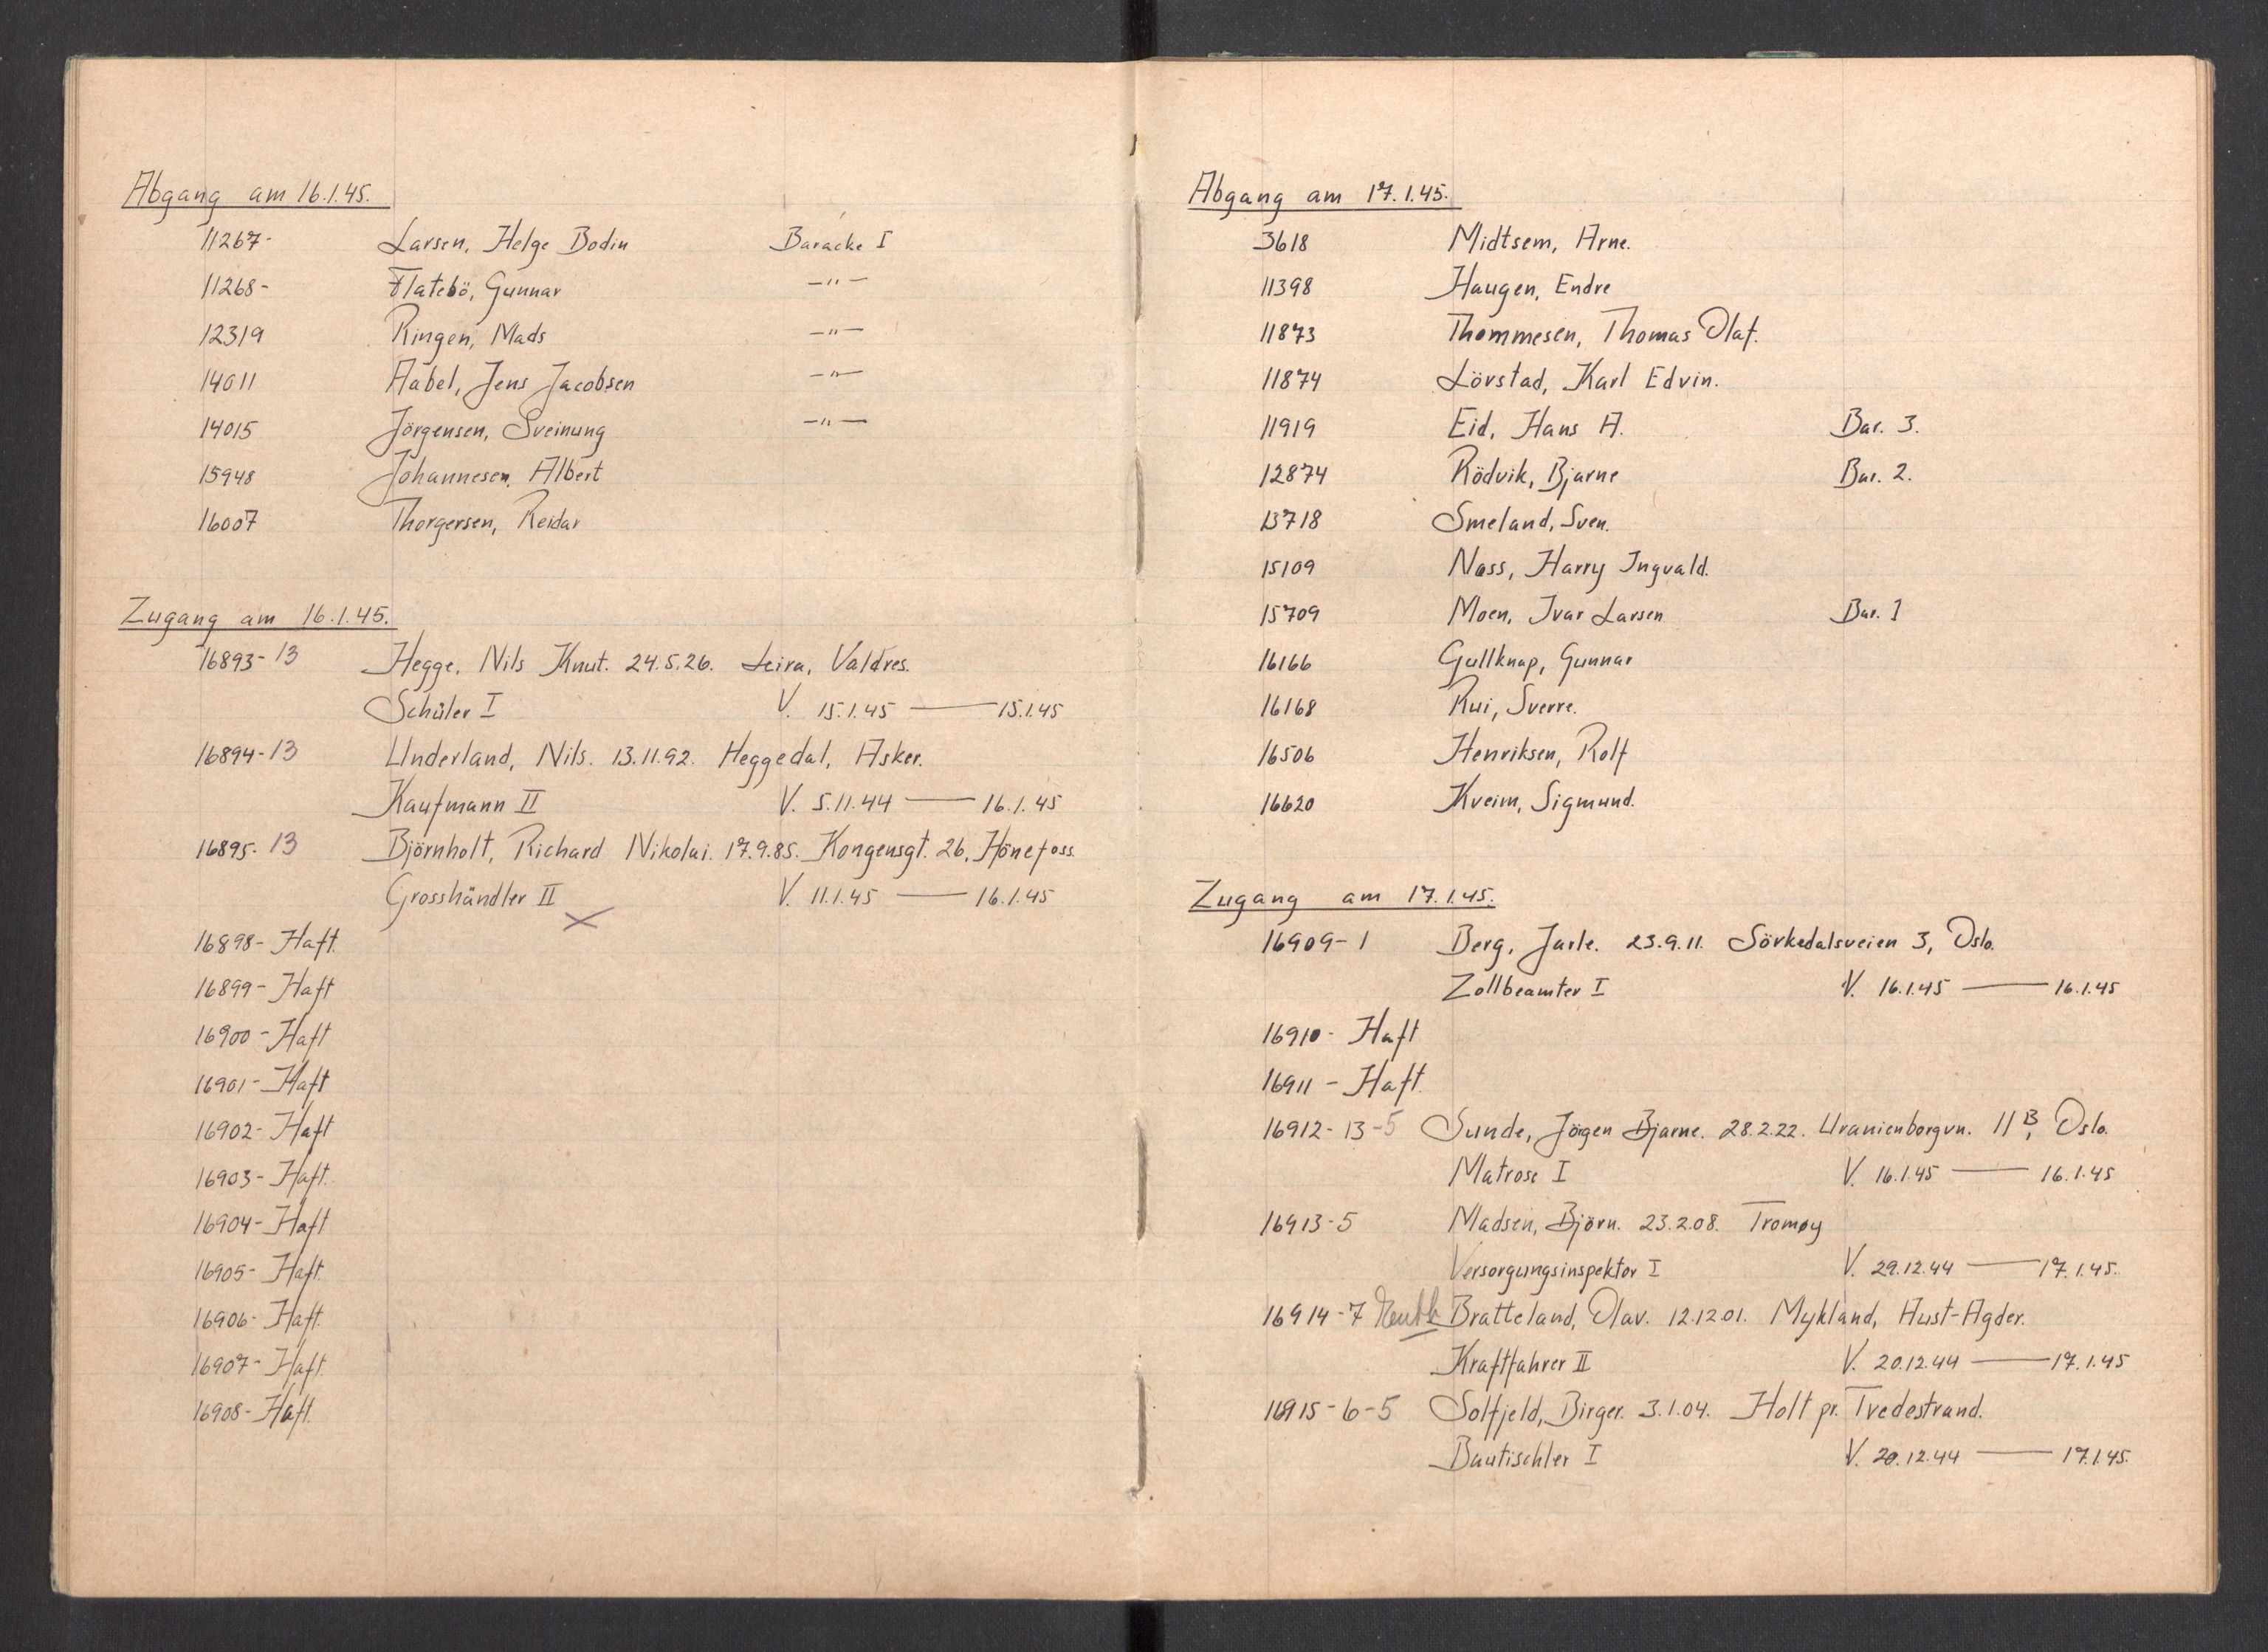 Abgang am 16.1.45.
11267- Larsen, Helge Bodin Baracke I
11268- Flatebö, Gunnar —"—
12319 Ringen, Mads —"—
14011 Aabel, Jens Jacobsen —"—
14015 Jörgensen, Sveinung —"—
15948 Johannesen, Albert
16007 Thorgersen, Reidar
Zugang am 16.1.45.
16893-13 Hegge, Nils Knut. 24.5.26. Leira, Valdres.
Schüler I V. 15.1.45 — 15.1.45
16894-13 Underland, Nils. 13.11.92. Heggedal, Asker.
Kaufmann II V. 5.11.44 — 16.1.45
16895-13 Björnholt, Richard Nikolai. 17.9.85. Kongensgt. 26, Hönefoss.
Grosshändler II V. 11.1.45 — 16.1.45
16898- Haft.
16899- Haft
16900- Haft
16901- Haft
16902- Haft
16903- Haft.
16904- Haft
16905- Haft.
16906- Haft.
16907- Haft.
16908- Haft.
Abgang am 17.1.45.
3618 Midtsem, Arne.
11398 Haugen, Endre
11873 Thommesen, Thomas Olaf.
11874 Lövstad, Karl Edvin.
11919 Eid, Hans A. Bar. 3.
12874 Rödvik, Bjarne Bar. 2.
13718 Smeland, Sven.
15109 Ness, Harry Ingvald.
15709 Moen, Ivar Larsen Bar. I
16166 Gullknap, Gunnar
16168 Rui, Sverre.
16506 Henriksen, Rolf
16620 Kveim, Sigmund.
Zugang am 17.1.45.
16909-1 Berg, Jarle. 23.9.11. Sörkedalsveien 3, Oslo.
Zollbeamter I V. 16.1.45 — 16.1.45
16910- Haft
16911- Haft.
16912-13-5 Sunde, Jörgen Bjarne. 28.2.22. Uranienborgvn. 11B, Oslo.
Matrose I V. 16.1.45 — 16.1.45
16913-5 Madsen, Björn. 23.2.08. Tromøy
Versorgungsinspektor I V. 29.12.44 — 17.1.45.
16914-7 Bratteland, Olav. 12.12.01. Mykland, Aust-Agder.
Kraftfahrer II V. 20.12.44 — 17.1.45
16915-6-5 Solfjeld, Birger. 3.1.04. Holt pr. Tvedestrand.
Bautischler I V. 20.12.44 — 17.1.45.